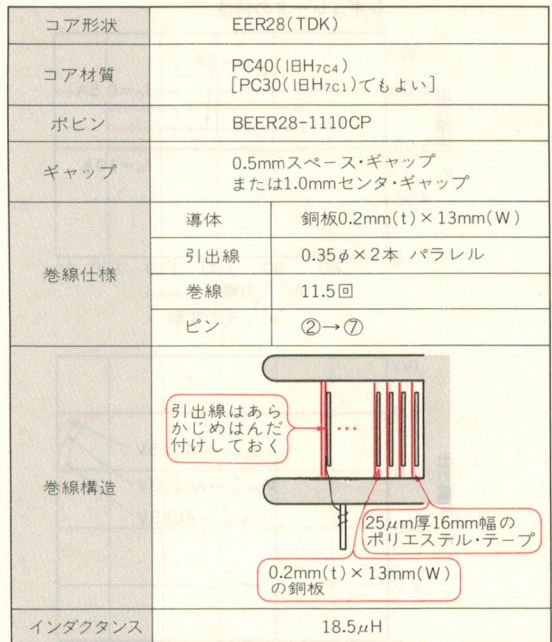 コア形状 EER28(TDK)
コア材質 PC40(旧H7C4)
[PC30(旧H7C1)でもよい]
ボビン BEER28-1110CP
ギャップ 0.5mmスペース・ギャップ
または1.0mmセンタ・ギャップ
巻線仕様
導体 銅板0.2mm(t)×13mm(W)
引出線 0.35φ×2本 パラレル
巻線 11.5回
ピン ②→⑦
巻線構造
引出線はあら
かじめはんだ
付けしておく
25μm厚16mm幅の
ポリエステル・テープ
0.2mm(t)×13mm(W)
の銅板
インダクタンス 18.5μH